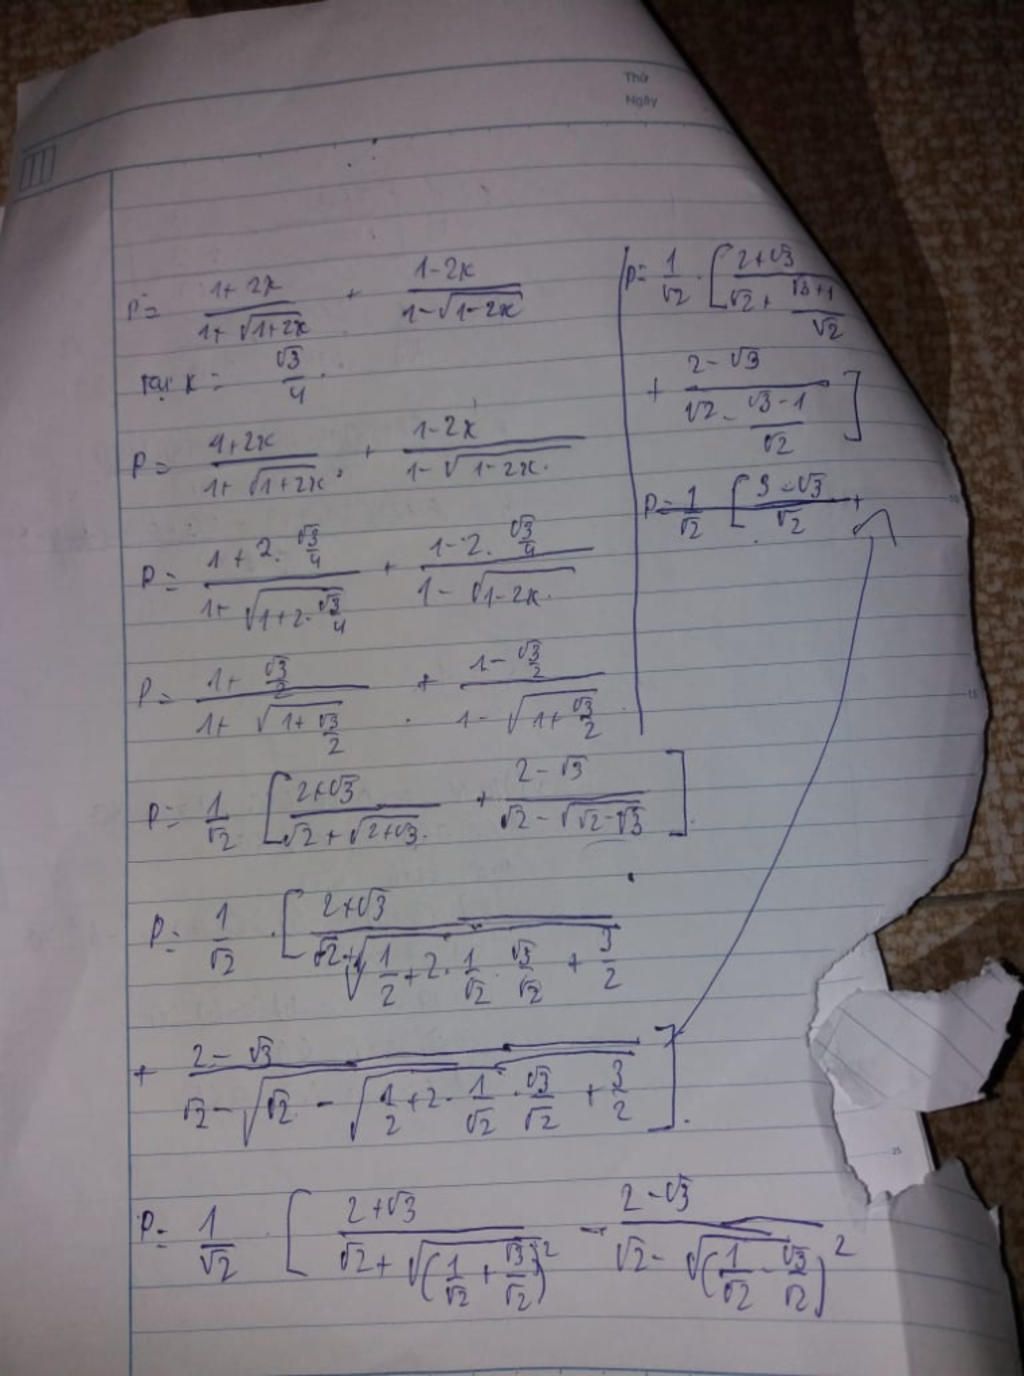 Thứ
Ngày
P = \frac{1+2x}{1+\sqrt{1+2x}} + \frac{1-2x}{1-\sqrt{1-2x}}
tại x = \frac{\sqrt{3}}{4}.
P = \frac{1+2x}{1+\sqrt{1+2x}} + \frac{1-2x}{1-\sqrt{1-2x}}
P = \frac{1+2.\frac{\sqrt{3}}{4}}{1+\sqrt{1+2.\frac{\sqrt{3}}{4}}} + \frac{1-2.\frac{\sqrt{3}}{4}}{1-\sqrt{1-2x}}
P = \frac{1+\frac{\sqrt{3}}{2}}{1+\sqrt{1+\frac{\sqrt{3}}{2}}} + \frac{1-\frac{\sqrt{3}}{2}}{1-\sqrt{1+\frac{\sqrt{3}}{2}}}
P = \frac{1}{\sqrt{2}} [\frac{2+\sqrt{3}}{\sqrt{2}+\sqrt{2+\sqrt{3}}} + \frac{2-\sqrt{3}}{\sqrt{2}-\sqrt{\sqrt{2}-\sqrt{3}}}]
P = \frac{1}{\sqrt{2}} . [\frac{2+\sqrt{3}}{\sqrt{2}+\sqrt{\frac{1}{2}+2.\frac{1}{\sqrt{2}}.\frac{\sqrt{3}}{\sqrt{2}}+\frac{3}{2}}}
+ \frac{2-\sqrt{3}}{\sqrt{2}-\sqrt{\sqrt{2}-\sqrt{\frac{1}{2}+2.\frac{1}{\sqrt{2}}.\frac{\sqrt{3}}{\sqrt{2}}+\frac{3}{2}}}}].
P = \frac{1}{\sqrt{2}} . [\frac{2+\sqrt{3}}{\sqrt{2}+\sqrt{(\frac{1}{\sqrt{2}}+\frac{\sqrt{3}}{\sqrt{2}})^2}} - \frac{2-\sqrt{3}}{\sqrt{2}-\sqrt{(\frac{1}{\sqrt{2}}-\frac{\sqrt{3}}{\sqrt{2}})^2}}
P = \frac{1}{\sqrt{2}} . [\frac{2+\sqrt{3}}{\sqrt{2}+\frac{\sqrt{3}+1}{\sqrt{2}}}
+ \frac{2-\sqrt{3}}{\sqrt{2}-\frac{\sqrt{3}-1}{\sqrt{2}}}]